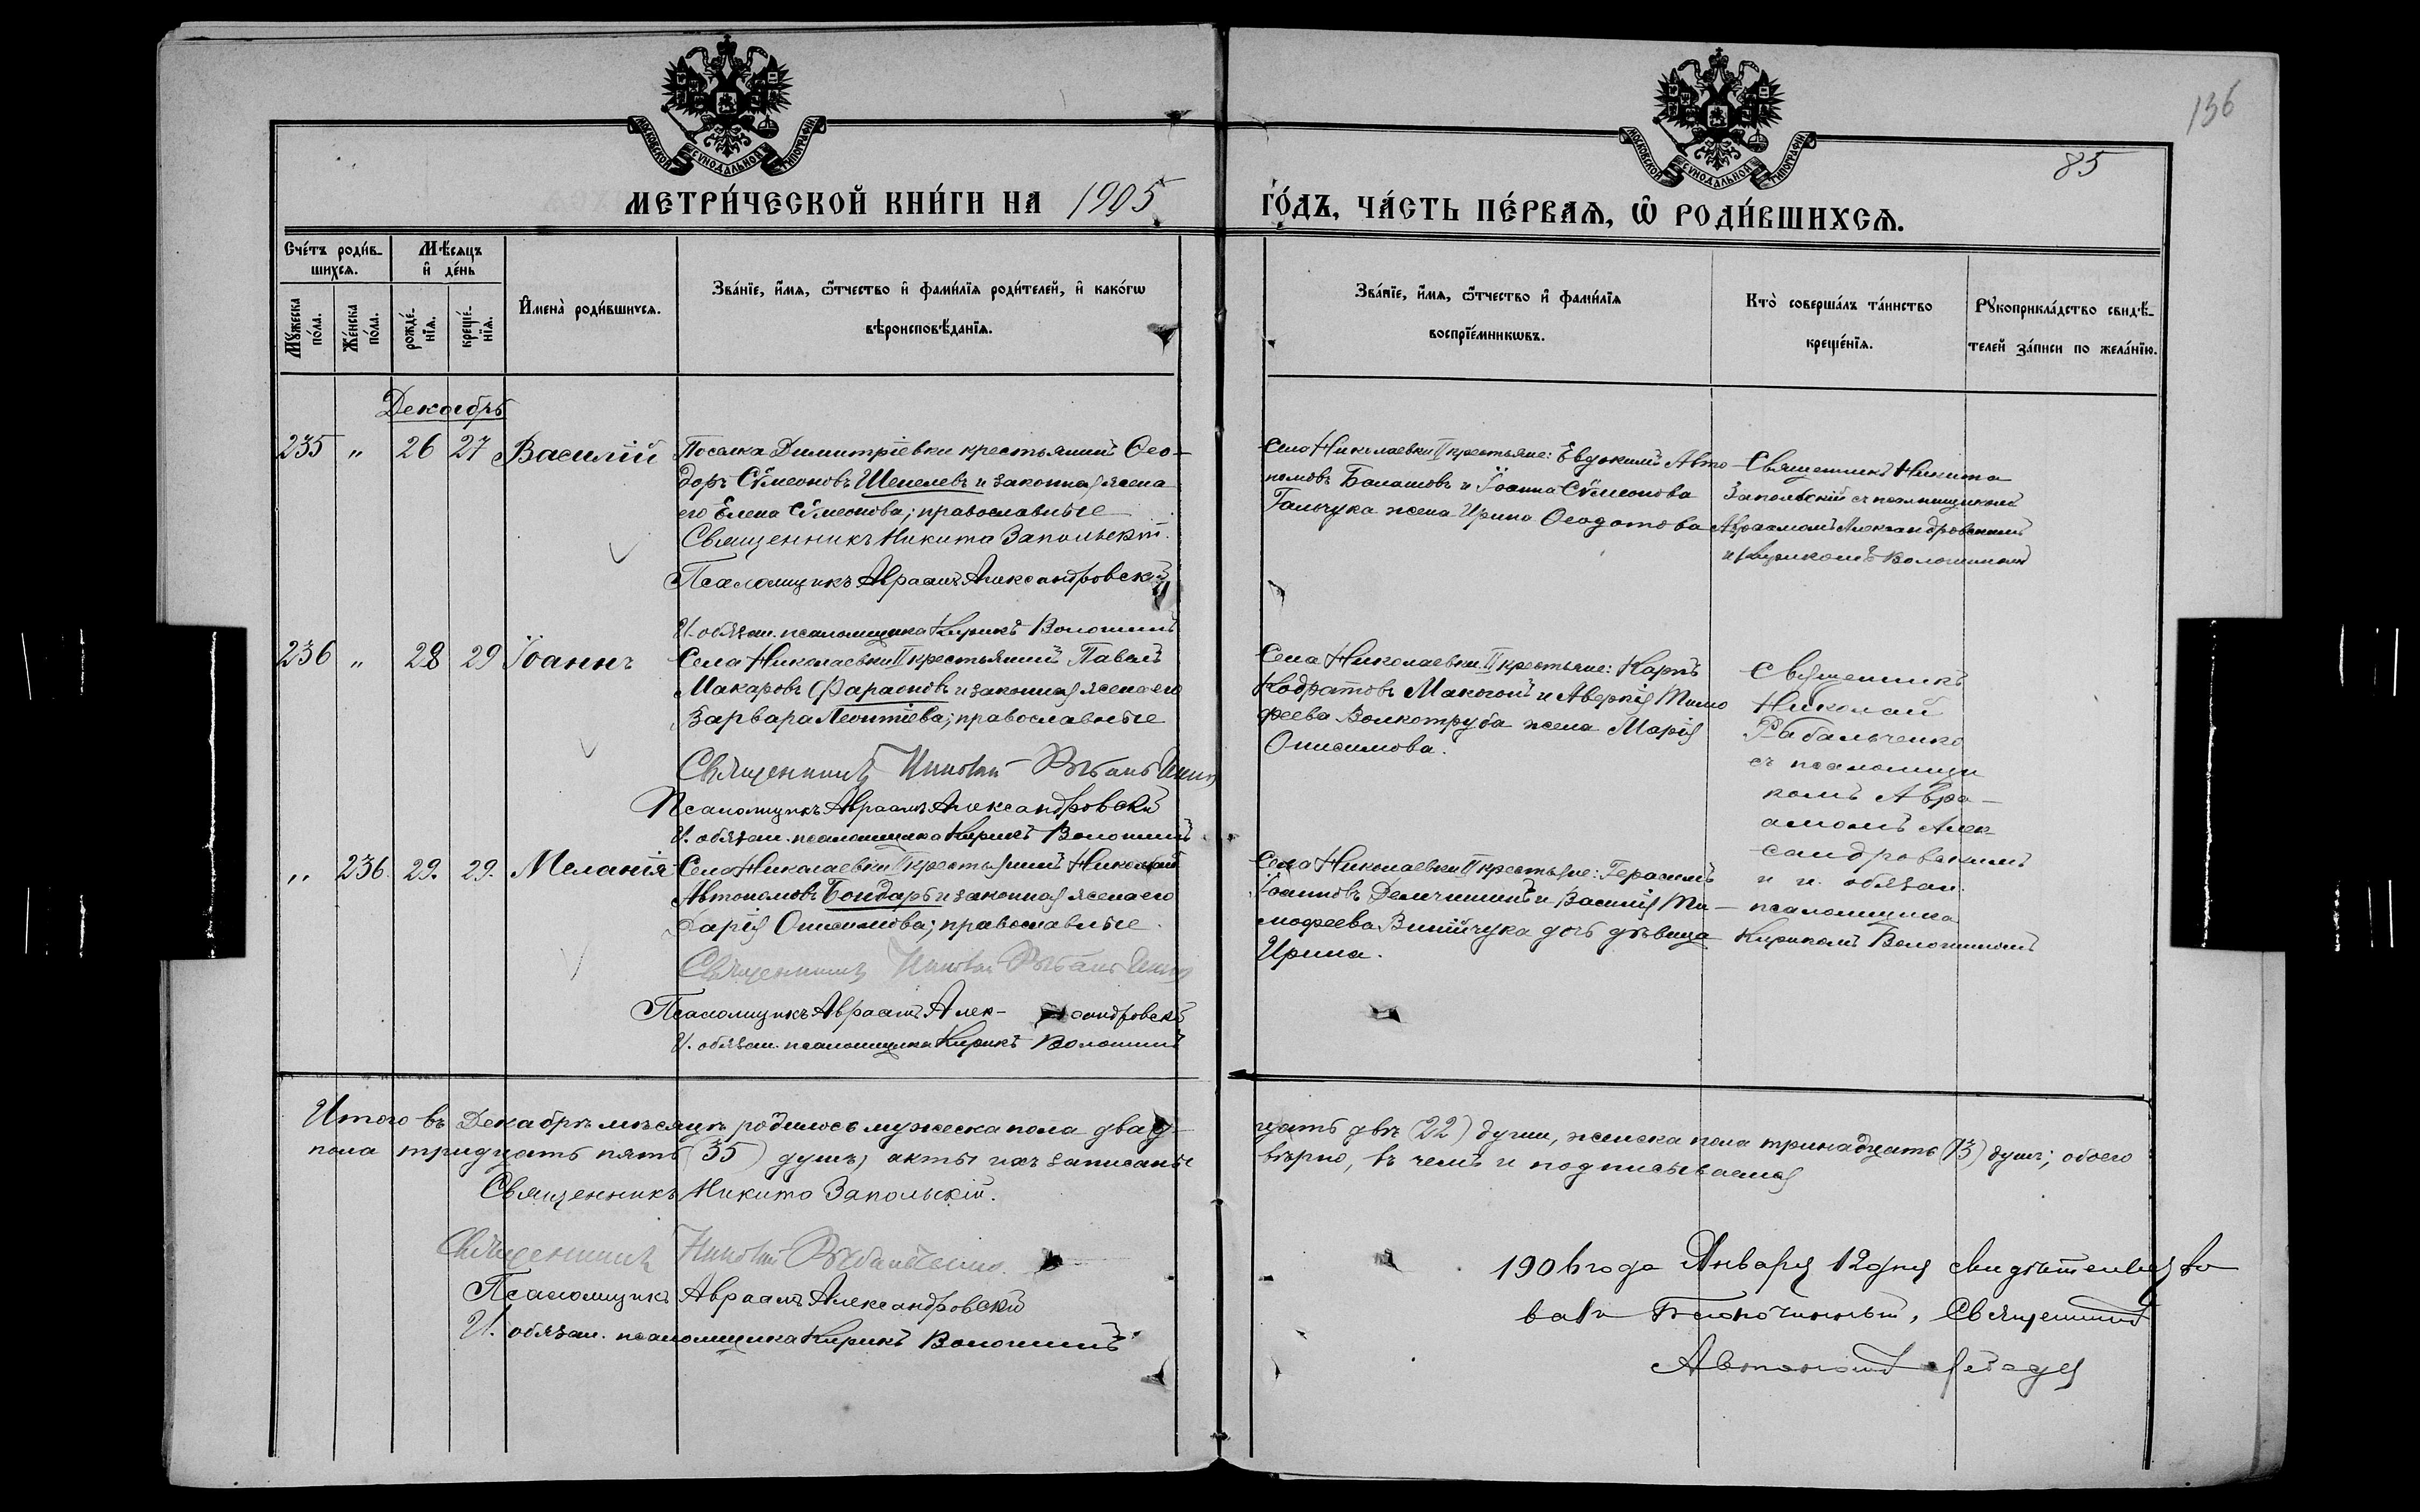 136
85
МОСКОВСКОЙ СѴНОДАЛЬНОЙ ТИПОГРАФІИ
МОСКОВСКОЙ СѴНОДАЛЬНОЙ ТИПОГРАФІИ
МЕТРИ́ЧЕСКОЙ КНИ́ГИ НА 1905
ГО́ДЪ, ЧА́СТЬ ПЕ́РВАѦ, Ѡ҆ РОДИ́ВШИХСѦ.
Сче́тъ роди́в-
шихсѧ.
Мѣ́сѧцъ
и҆ де́нь
Мꙋ́жеска
по́ла.
Же́нска
по́ла.
рожде́-
нїѧ.
креще́-
нїѧ.
И҆мена̀ роди́вшихсѧ.
Зва́нїе, и҆́мѧ, ѻ҆́тчество и҆ фами́лїѧ роди́телей, и҆ како́гѡ
вѣроисповѣ́данїѧ.
Зва́нїе, и҆́мѧ, ѻ҆́тчество и҆ фами́лїѧ
воспрїе́мникѡвъ.
Кто̀ соверша́лъ та́инство
креще́нїѧ.
Рꙋкоприкла́дство свидѣ́-
телей за́писи по жела́нїю.
Декабрь
235 " 26 27 Василій
Поселка Димитріевки крестьянинъ Ѳео-
доръ Сѵмеоновъ Шепелевъ и законная жена
его Елена Сѵмеонова; православные
Священникъ Никита Запольскій.
Псаломщикъ Авраамъ Александровскій
И. обязан. псаломщика Кирикъ Волошинъ
Села Николаевки II крестьяне: Евдокимъ Авто-
номовъ Балашовъ и Іоанна Сѵмеонова
Гальчука жена Ирина Ѳеодотова
Священникъ Никита
Запольскій съ псаломщикомъ
Авраамомъ Александровскимъ
и Кирикомъ Волошинымъ
236 " 28 29 Іоаннъ
Села Николаевки II крестьянинъ Павелъ
Макаровъ Фараоновъ и законная жена его
Варвара Леонтіева; православные
Священникъ Николай Рабальченко
Псаломщикъ Авраамъ Александровскій
И. обязан. псаломщика Кирикъ Волошинъ
Села Николаевки II крестьяне: Карпъ
Кодратовъ Макогонъ и Аверкія Тимо
феева Волкотруба жена Марія
Онисимова.
Священникъ
Николай
Рабальченко
съ псаломщи
комъ Авра-
амомъ Алек-
сандровскимъ
и и. обязан.
псаломщика
Кирикомъ Волошиномъ
" 236. 29. 29. Меланія
Села Николаевки II крестьянинъ Николай
Автономовъ Бондарь и законная жена его
Дарія Онисимова; православные.
Священникъ Николай Рабальченко
Псаломщикъ Авраамъ Алек- сандровскій
И. обязан. псаломщика Кирикъ Волошинъ
Села Николаевки II крестьяне: Герасимъ
Іоанновъ Демчишинъ и Василія Ти-
мофеева Винійчука дочь дѣвица
Ирина.
Итого въ Декабрѣ мѣсяцѣ родилось мужеска пола двад-
цать двѣ (22) души, женска пола тринадцать (13) душъ; обоего
пола тридцать пять (35) душъ, акты ихъ записаны
вѣрно, въ чемъ и подписываемся
Священникъ Никита Запольскій.
Священникъ Николай Рабальченко.
Псаломщикъ Авраамъ Александровскій
И. обязан. псаломщика Кирикъ Волошинъ.
1906 года Января 12 дня свидѣтельство
валъ Благочинный, Священникъ
Автономъ